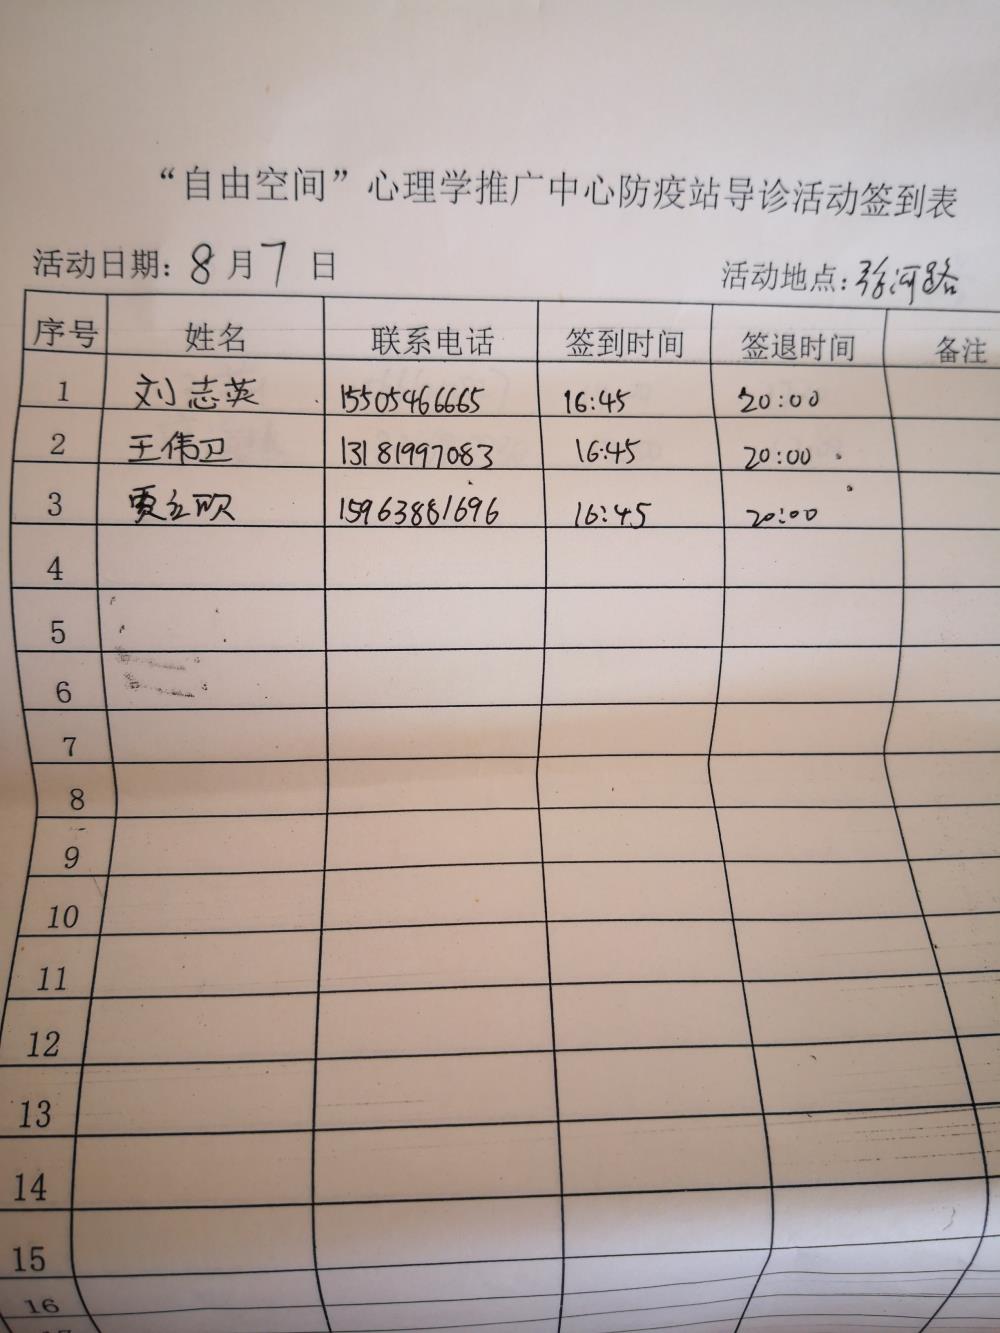 “自由空间”心理学推广中心防疫站导诊活动签到表
活动日期：8月7日 活动地点：弥河路
序号 姓名 联系电话 签到时间 签退时间 备注
1 刘志英 15505466665 16:45 20:00
2 王伟卫 13181997083 16:45 20:00
3 贾立欣 15963881696 16:45 20:00
4
5
6
7
8
9
10
11
12
13
14
15
16